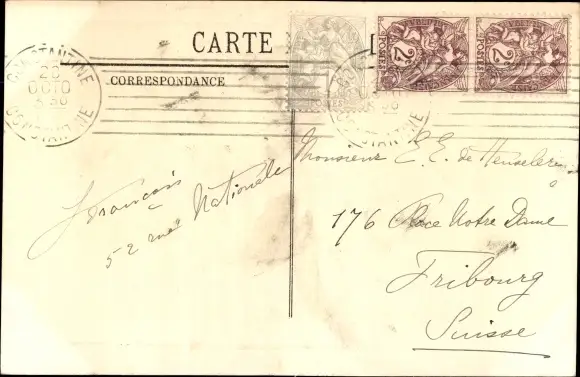 CARTE
CORRESPONDANCE
CONSTANTINE
CONSTANTINE
POSTES
2
POSTES
2
François
52 rue Nationale
Monsieur E. E. de
176 Place Notre Dame
Fribourg
Suisse